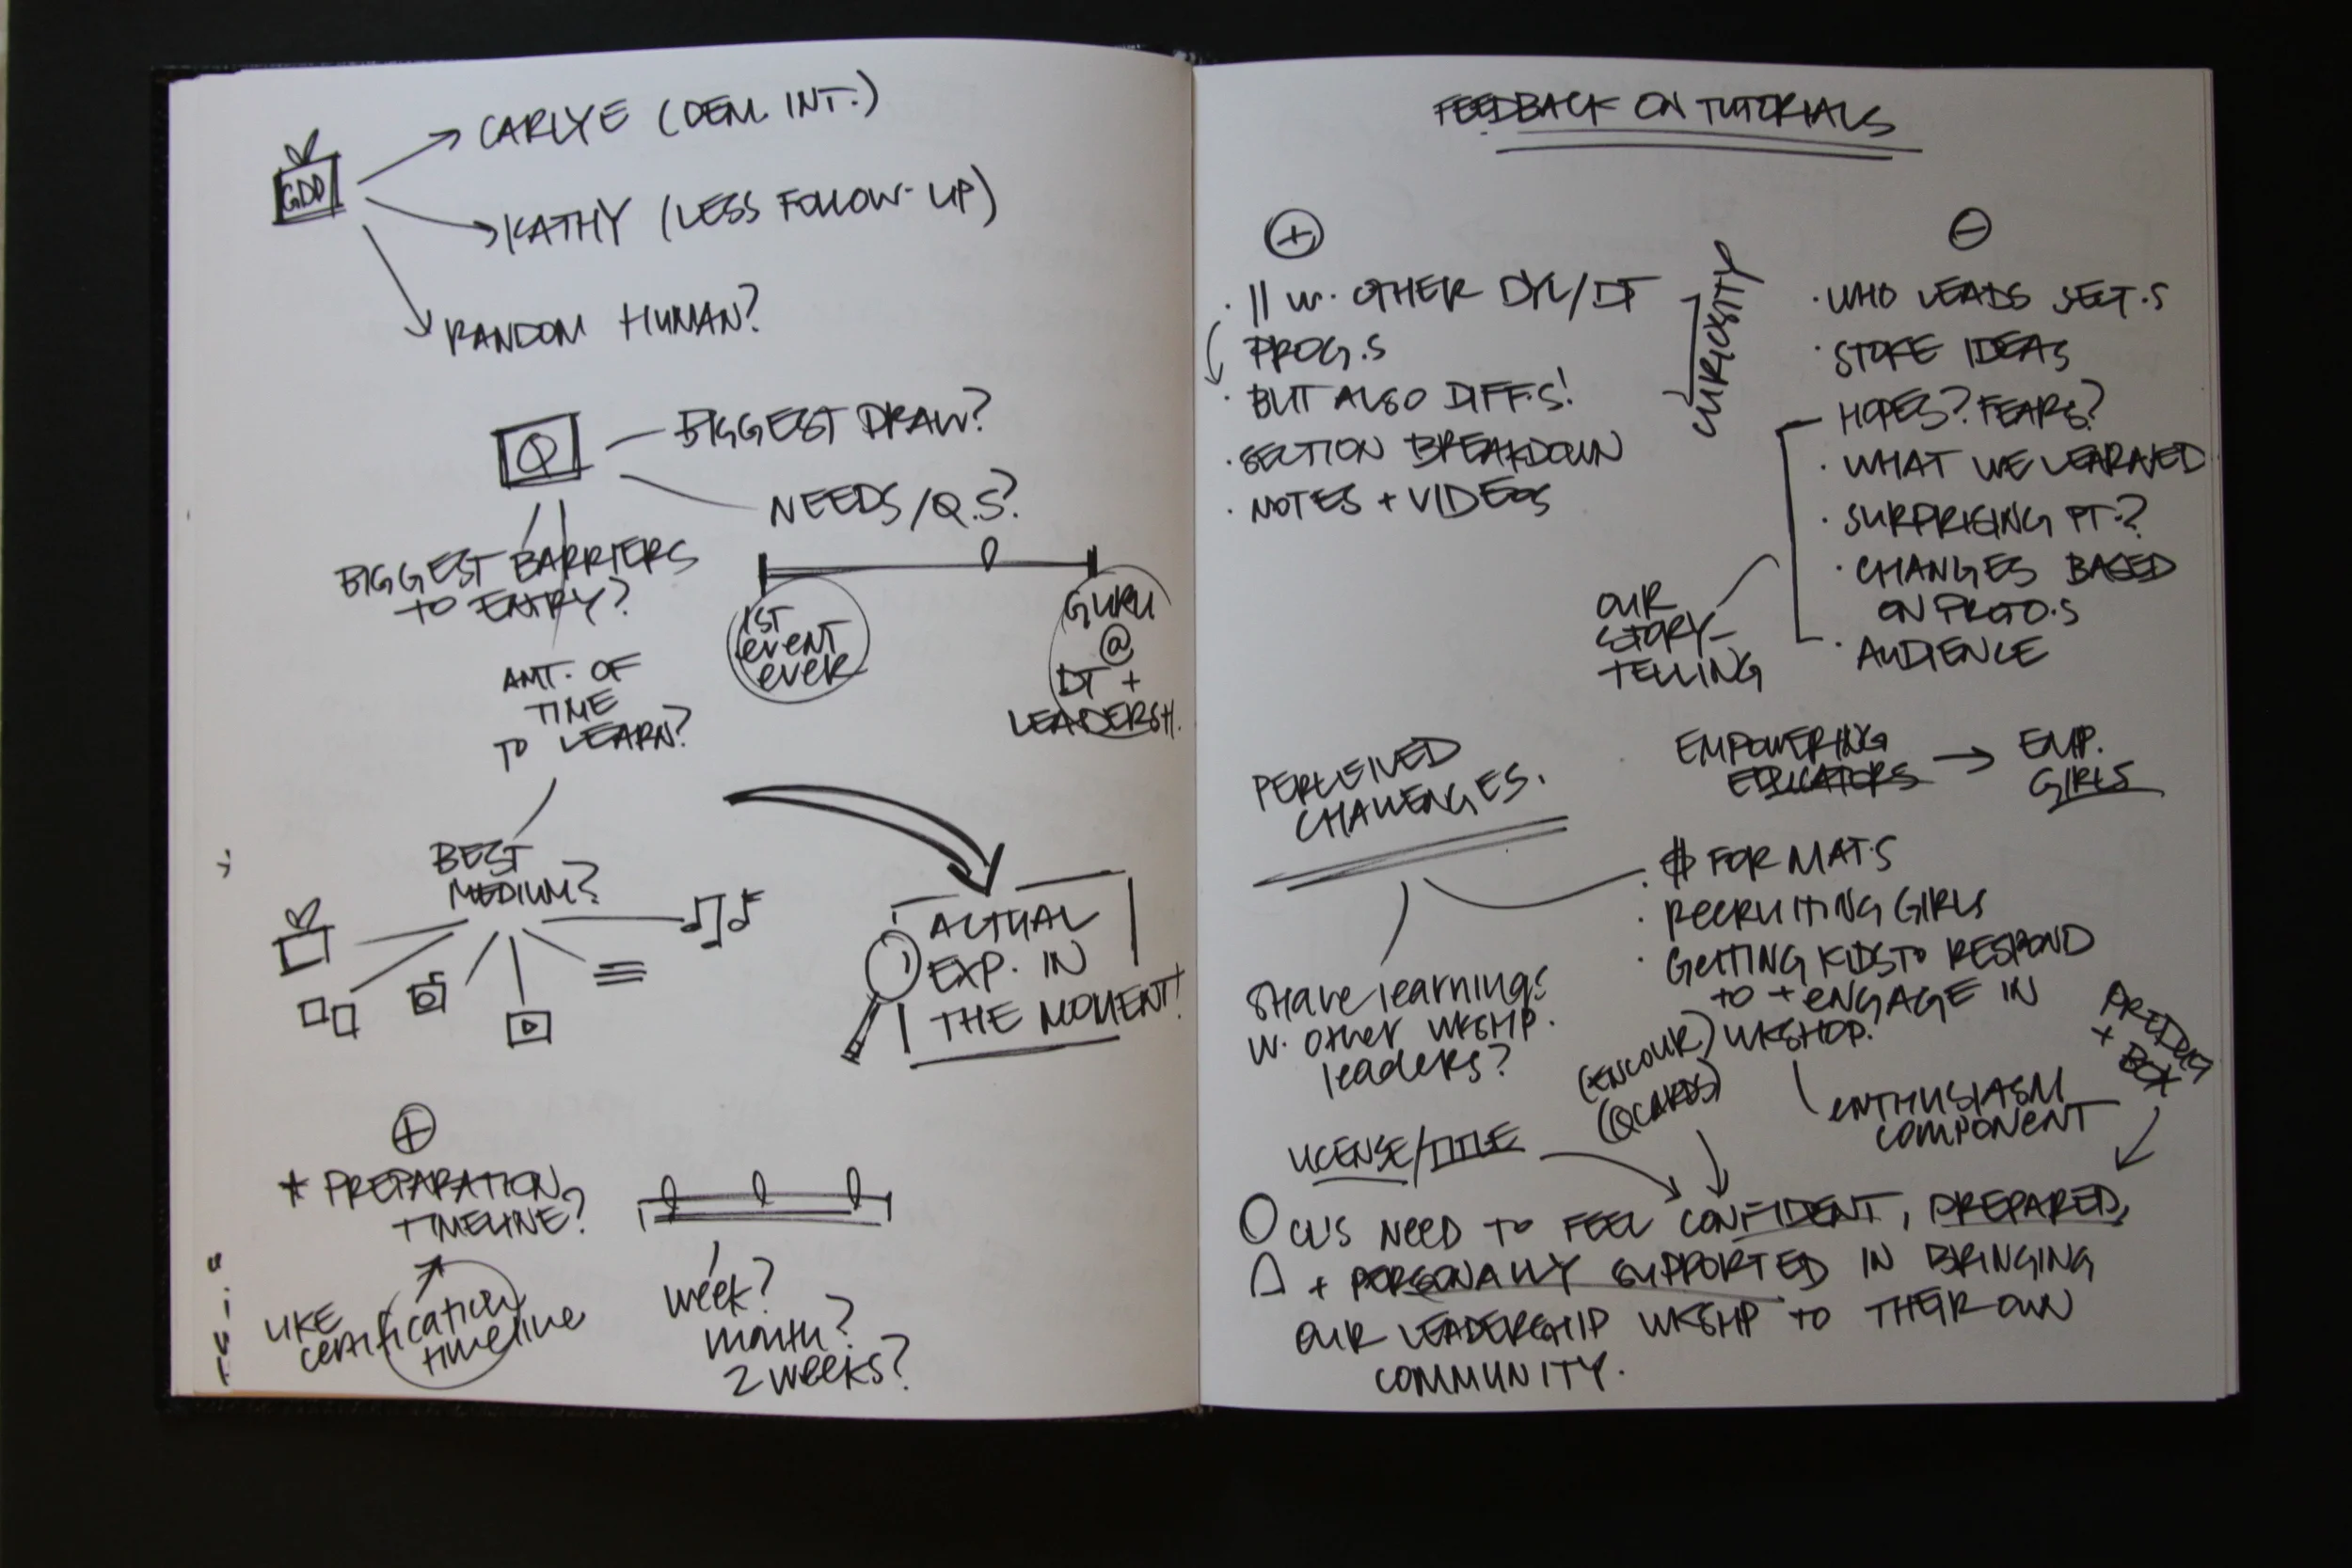 GDD
CARLYE (DEM. INT.)
KATHY (LESS FOLLOW-UP)
RANDOM HUMAN?
Q
BIGGEST DRAW?
NEEDS/Q.S?
BIGGEST BARRIERS
TO ENTRY?
1ST
event
ever
GURU
@
DT +
LEADERSH.
AMT. OF
TIME
TO LEARN?
BEST
MEDIUM?
ACTUAL
EXP. IN
THE MOMENT!
+
* PREPARATION
TIMELINE?
LIKE
certification
timeline
week?
month?
2 weeks?
FEEDBACK ON TUTORIALS
+
· || W. OTHER DYL/DT
PROG.S
· BUT ALSO DIFF.S!
· SECTION BREAKDOWN
· NOTES + VIDEOS
CURIOSITY
-
· WHO LEADS SECT.S
· STOKE IDEAS
HOPES? FEARS?
· WHAT WE LEARNED
· SURPRISING PT.?
· CHANGES BASED
ON PROTO.S
· AUDIENCE
OUR
STORY-
TELLING
EMPOWERING
EDUCATORS → EMP.
GIRLS
PERCEIVED
CHALLENGES.
· $ FOR MAT.S
· RECRUITING GIRLS
· GETTING KIDS TO RESPOND
TO + ENGAGE IN
WKSHOP.
Share learnings
w. other WKSHP.
leaders?
(ENCOUR)
(QCARDS)
ENTHUSIASM
COMPONENT
+ BOX
LICENSE/TITLE
CL'S NEED TO FEEL CONFIDENT, PREPARED,
+ PERSONALLY SUPPORTED IN BRINGING
OUR LEADERSHIP WKSHP TO THEIR OWN
COMMUNITY.